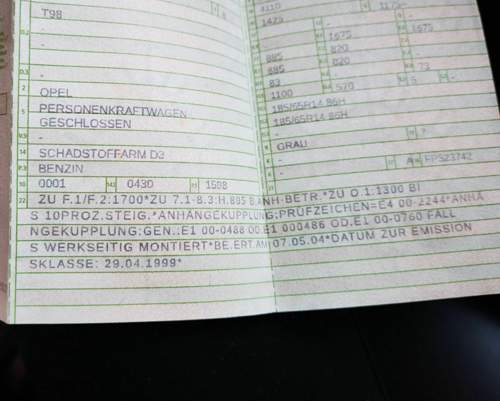 T98
1425
-
1675
-
1675
885
820
-
885
820
-
83
73
-
1100
520
5
-
2 OPEL
185/65R14 86H
5 PERSONENKRAFTWAGEN
185/65R14 86H
GESCHLOSSEN
-
GRAU
7
14 SCHADSTOFFARM D3
-
P.3 BENZIN
-
FP523742
10 0001 14.1 0430 1598
22 ZU F.1/F.2:1700*ZU 7.1-8.3:H.885 B.ANH-BETR.*ZU O 1:1300 BI
S 10PROZ.STEIG.*ANHÄNGEKUPPLUNG:PRÜFZEICHEN=E4 00-2244*ANHÄ
NGEKUPPLUNG:GEN.:E1 00-0488 OD.E1 000486 OD.E1 00-0760 FALL
S WERKSEITIG MONTIERT*BE.ERT.AM 07.05.04*DATUM ZUR EMISSION
SKLASSE: 29.04.1999*